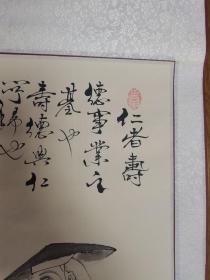 仁者壽
德事業之
基也
壽德與仁
歸也